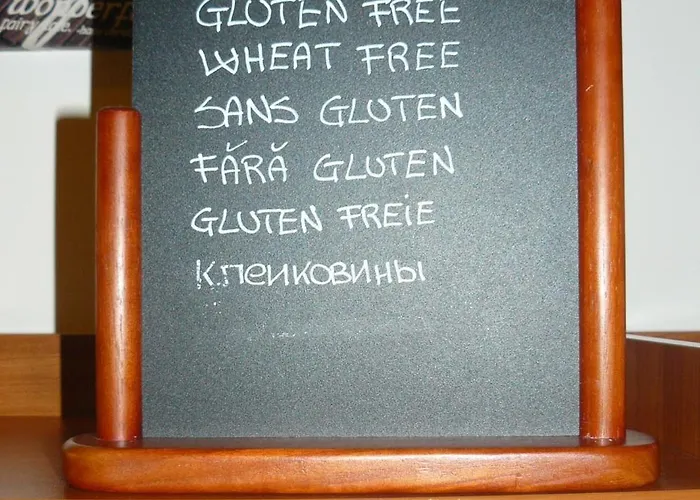 GLUTEN FREE
WHEAT FREE
SANS GLUTEN
FĂRĂ GLUTEN
GLUTEN FREiE
Клеиковины